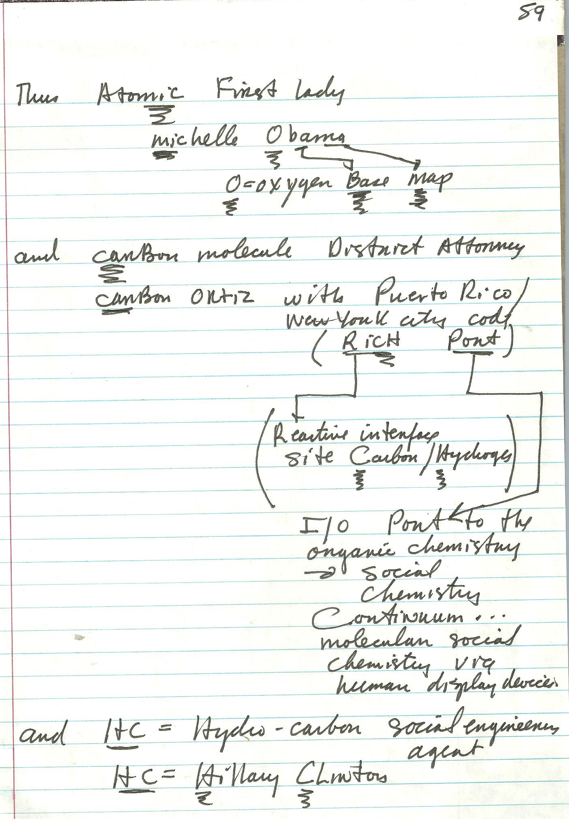 59
Thus Atomic First Lady
michelle Obama
O=oxygen Base Map
and carbon molecule District Attorney
carbon ORtiz with Puerto Rico/
New York city code
(RicH Port)
(Reactive interface
site Carbon/Hydrogen)
I/O Port to the
organic chemistry
→ social
chemistry
Continuum...
molecular social
chemistry via
human display devices
and HC = Hydro-carbon social engineering
agent
HC = Hillary CLinton